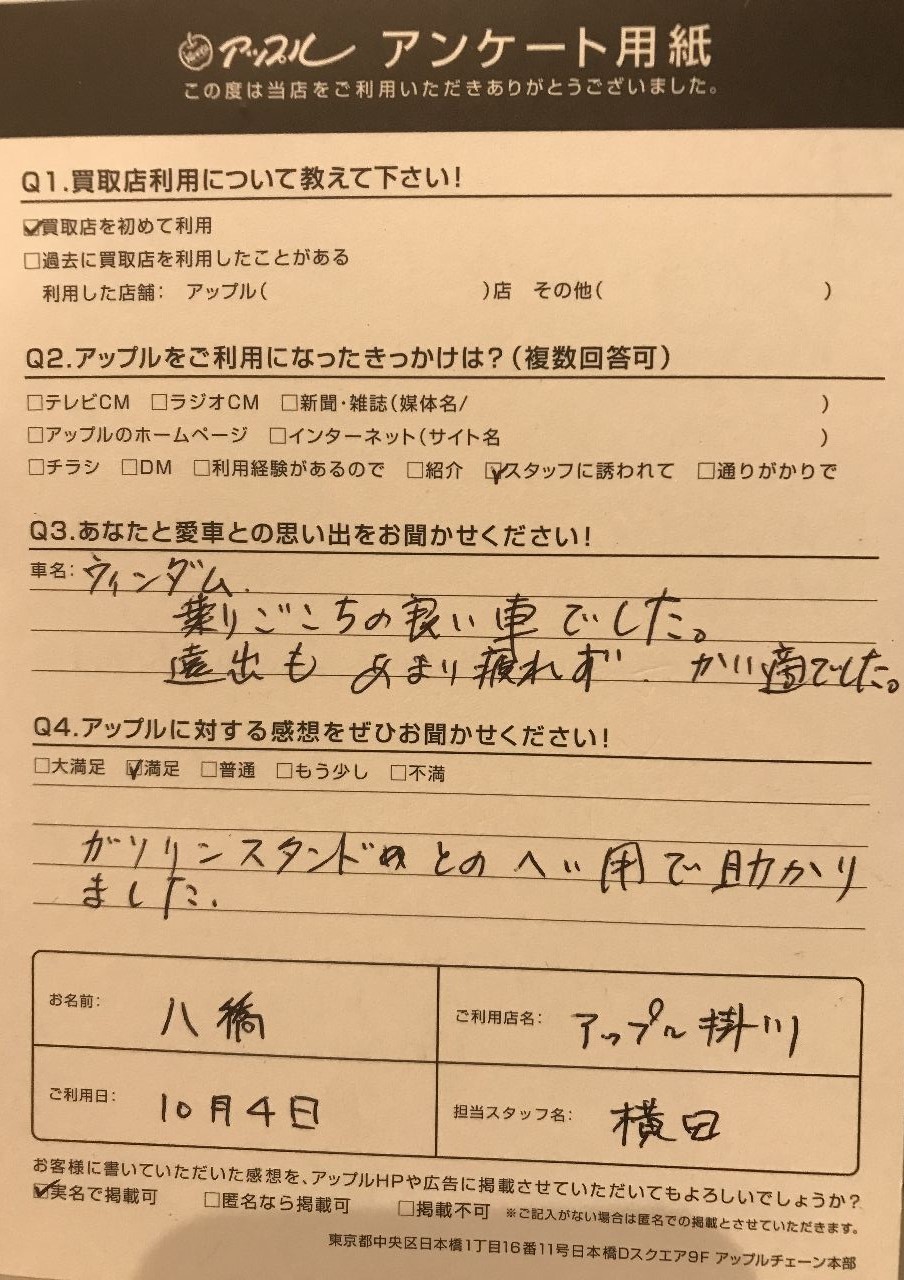 アップル アンケート用紙
この度は当店をご利用いただきありがとうございました。
Q1.買取店利用について教えて下さい!
☑買取店を初めて利用
□過去に買取店を利用したことがある
利用した店舗: アップル( )店 その他( )
Q2.アップルをご利用になったきっかけは?(複数回答可)
□テレビCM □ラジオCM □新聞・雑誌(媒体名/ )
□アップルのホームページ □インターネット(サイト名 )
□チラシ □DM □利用経験があるので □紹介 ☑スタッフに誘われて □通りがかりで
Q3.あなたと愛車との思い出をお聞かせください!
車名: ウィンダム.
乗りごこちの良い車でした。
遠出も あまり疲れず. かい適でした。
Q4.アップルに対する感想をぜひお聞かせください!
□大満足 ☑満足 □普通 □もう少し □不満
ガソリンスタンド との へい用で助かり
ました.
お名前: 八橋 ご利用店名: アップル掛川
ご利用日: 10月4日 担当スタッフ名: 横田
お客様に書いていただいた感想を、アップルHPや広告に掲載させていただいてもよろしいでしょうか?
☑実名で掲載可 □匿名なら掲載可 □掲載不可 ※ご記入がない場合は匿名での掲載とさせていただきます。
東京都中央区日本橋1丁目16番11号日本橋Dスクエア9F アップルチェーン本部